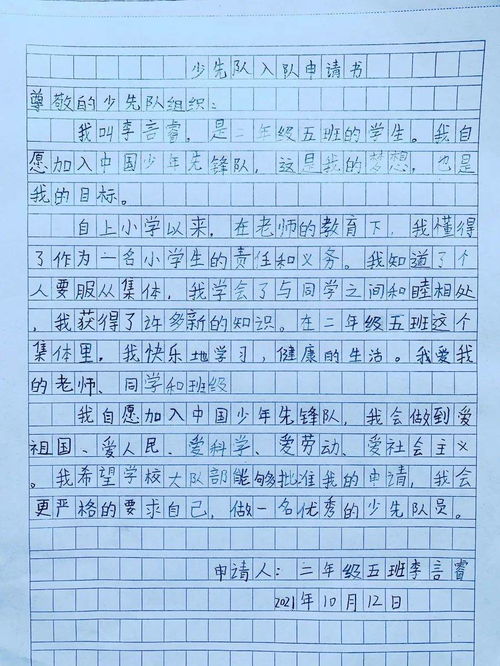 少先队入队申请书
尊敬的少先队组织：
我叫李言睿，是二年级五班的学生。我自
愿加入中国少年先锋队，这是我的梦想，也是
我的目标。
自上小学以来，在老师的教育下，我懂得
了作为一名小学生的责任和义务。我知道了个
人要服从集体，我学会了与同学之间和睦相处
，我获得了许多新的知识。在二年级五班这个
集体里，我快乐地学习，健康的生活。我爱我
的老师、同学和班级
我自愿加入中国少年先锋队，我会做到爱
祖国、爱人民、爱科学、爱劳动、爱社会主义
。我希望学校大队部能够批准我的申请，我会
更严格的要求自己，做一名优秀的少先队员。
申请人：二年级五班李言睿
2021年10月12日